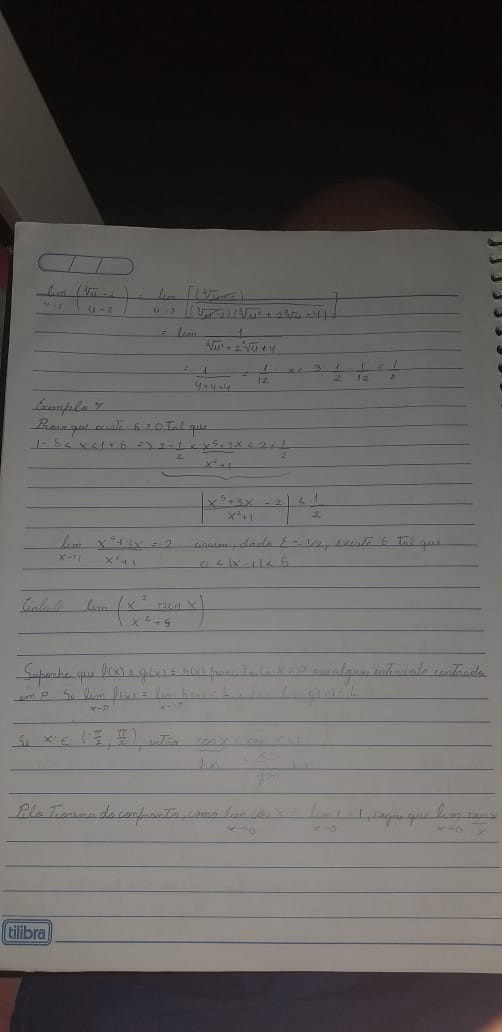 lim u→8 (∛u - 2 / u - 8) = lim u→8 [(∛u - 2) / (∛u - 2)(∛u² + 2∛u + 4)]
= lim 1 / ∛u² + 2∛u + 4
= 1 / 4+4+4 = 1/12 3 · 1/2 · 1/12 = 1/8
Exemplo 7
Prove que existe δ > 0 tal que
1-δ < x < 1+δ => 2 - 1/2 < x⁵+3x / x²+1 < 2 + 1/2
| x⁵+3x / x²+1 - 2 | < 1/2
lim x→1 x⁵+3x / x²+1 = 2 assim, dado ε = 1/2, existe δ tal que
0 < |x-1| < δ
Calcule lim (x² sen x / x²+5)
Suponha que f(x) ≤ g(x) ≤ h(x) para todo x ≠ P em algum intervalo centrado
em P. Se lim x→P f(x) = lim x→P h(x) = L lim g(x) = L
Se x ∈ (-π/2, π/2), então cos x < sen x / x < 1
Pelo Teorema do confronto, como lim x→0 cos x = lim x→0 1 = 1, segue que lim x→0 sen x / x
tilibra